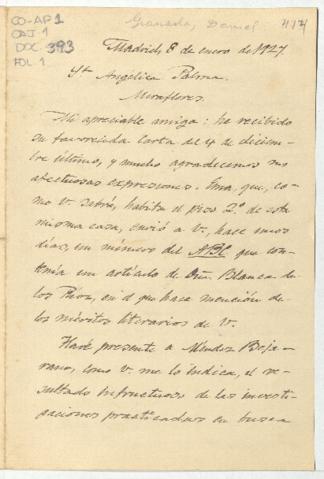 CO-AP1
CAJ 1
DOC 393
FOL 1
Granada, Daniel
417
Madrid, 8 de enero de 1927
Srta Angélica Palma.
Miraflores.
Mi apreciable amiga: he recibido
su favorecida carta del 4 de diciem-
bre último, y mucho agradecemos sus
afectuosas expresiones. Ema, que, co-
mo V. sabrá, habita el piso 2.º de esta
misma casa, envió a V., hace unos
días, un número del ABC que con-
tenía un artículo de Dña Blanca de
los Ríos, en el que hace mención de
los méritos literarios de V.
Haré presente a Méndez Beja-
rano, como V. me lo indica, el re-
sultado infructuoso de las investi-
gaciones practicadas en busca